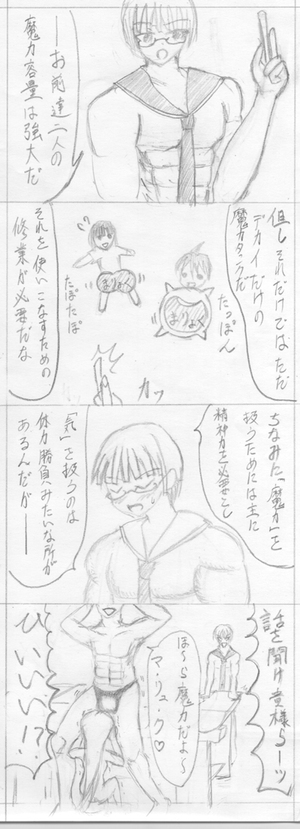 ――お前達二人の
魔力容量は強大だ
但しそれだけではただ
デカイだけの
魔力タンクだ
たっぽん
まりょく
まりょく
たぽたぽ
それを使いこなすための
修業が必要だな
カッ
ちなみに「魔力」を
扱うためには主に
精神力を必要とし
「気」を扱うのは
体力勝負みたいな所が
あるんだが――
話を聞け貴様らーッ
ほ〜ら魔力だよ〜
マ・リョ・ク♡
ひいいい!?